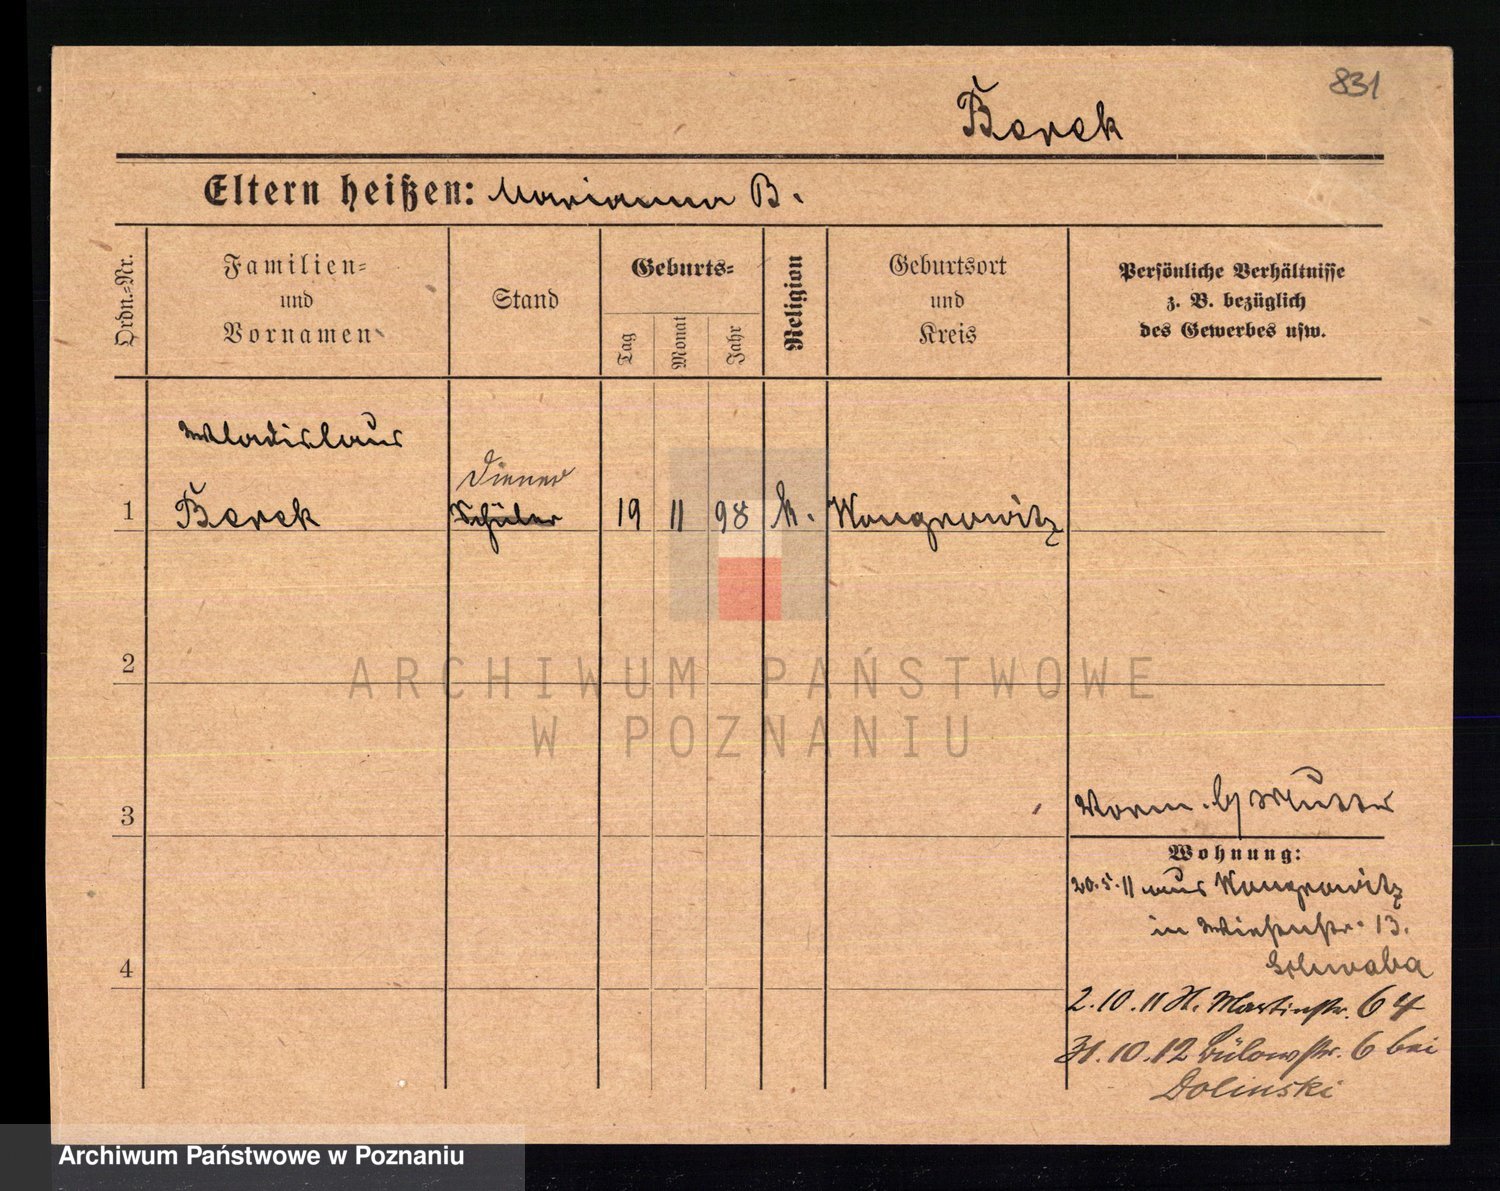 831
Berek
Eltern heißen: Marianna B.
Ordn.-Nr.
Familien- und Vornamen
Stand
Geburts-
Tag
Monat
Jahr
Religion
Geburtsort und Kreis
Persönliche Verhältnisse
z. B. bezüglich
des Gewerbes usw.
Wladislaus
Diener
1 Berek Schüler 19 11 98 k. Wongrowitz
2
ARCHIWUM PAŃSTWOWE
W POZNANIU
3
Vorm. Mutter
Wohnung:
20.5.11 aus Wongrowitz
in Wiesenstr. 13.
4
2.10.11 St. Martinstr. 64
31.10.12 Bülowstr. 6 bei
Dolinski
Archiwum Państwowe w Poznaniu